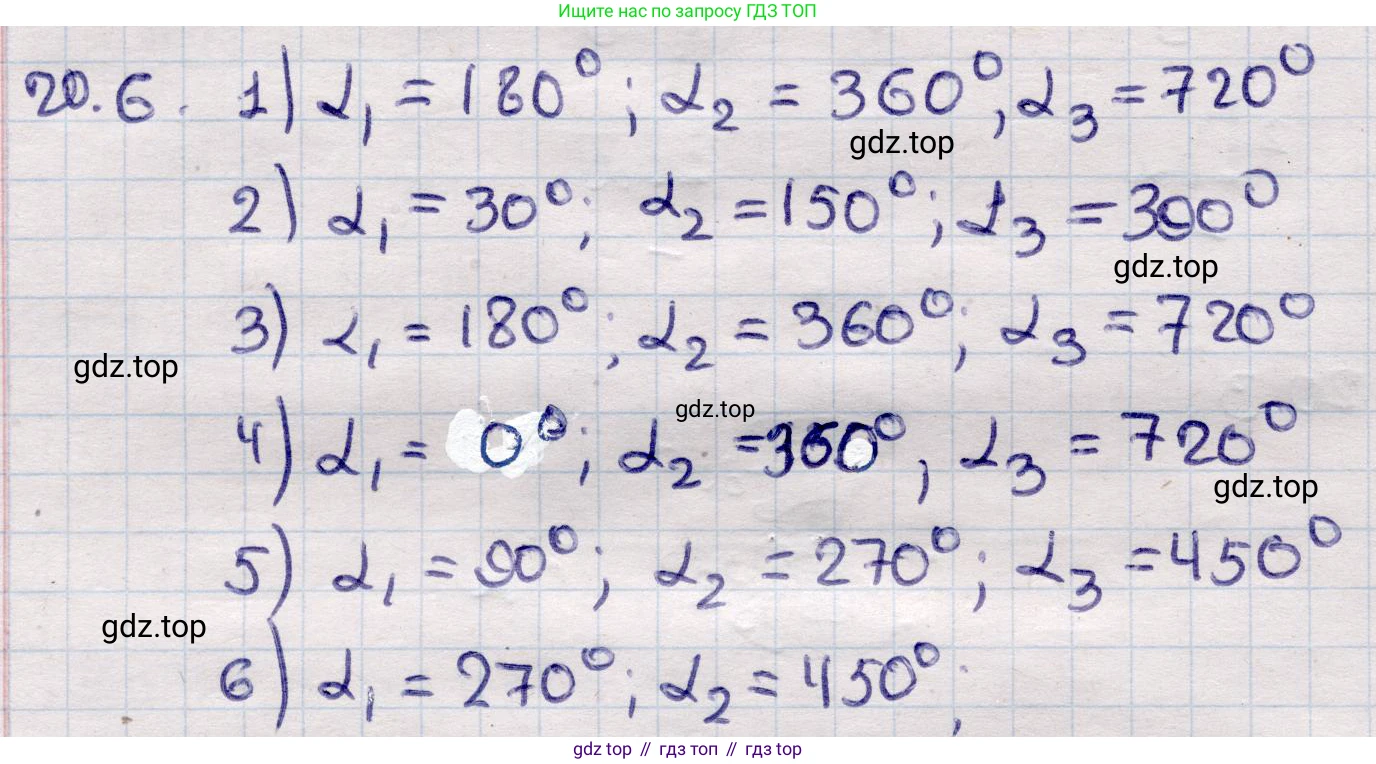 Ищите нас по запросу ГДЗ ТОП
20.6. 1) α₁ = 180°; α₂ = 360°, α₃ = 720°
gdz.top
2) α₁ = 30°; α₂ = 150°; α₃ = 390°
gdz.top
3) α₁ = 180°; α₂ = 360°; α₃ = 720°
gdz.top
gdz.top
4) α₁ = 0°; α₂ = 360°, α₃ = 720°
gdz.top
5) α₁ = 90°; α₂ = 270°; α₃ = 450°
gdz.top
6) α₁ = 270°; α₂ = 450°;
gdz top // гдз топ // gdz top